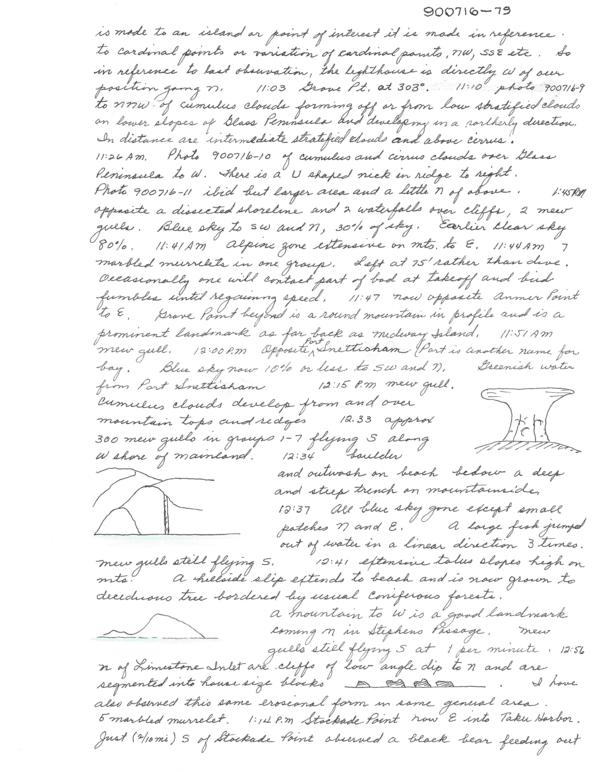 900716-79
is made to an island or point of interest it is made in reference
to cardinal points or variation of cardinal points, NW, SSE etc. So
in reference to last observation, the lighthouse is directly W of our
position going N. 11:03 Grove Pt. at 303°. 11:10 photo 900716-9
to NNW of cumulus clouds forming off or from low stratified clouds
on lower slopes of Glass Peninsula and developing in a northerly direction.
In distance are intermediate stratified clouds and above cirrus.
11:26 AM. Photo 900716-10 of cumulus and cirrus clouds over Glass
Peninsula to W. There is a U shaped nick in ridge to right.
Photo 900716-11 ibid but larger area and a little N of above. 1:45PM
opposite a dissected shoreline and 2 waterfalls over cliffs, 2 mew
gulls. Blue sky to SW and N, 30% of sky. Earlier clear sky
80%. 11:41 AM Alpine zone extensive on mts. to E. 11:44 AM 7
marbled murrelets in one group. Left at 75' rather than dive.
Occasionally one will contact part of bod at takeoff and bird
fumbles until regaining speed. 11:47 now opposite Anmer Point
to E. Grove Point beyond is a round mountain in profile and is a
prominent landmark as far back as Midway Island. 11:51 AM
mew gull. 12:00 P.M Opposite Port Snettisham (Port is another name for
bay. Blue sky now 10% or less to SW and N. Greenish water
from Port Snettisham 12:15 P.M mew gull.
Cumulus clouds develop from and over
mountain tops and ridges 12:33 approx
300 mew gulls in groups 1-7 flying S along
W shore of mainland. 12:34 boulder
and outwash on beach below a deep
and steep trench on mountainside.
12:37 All blue sky gone except small
patches N and E. A large fish jumped
out of water in a linear direction 3 times.
mew gulls still flying S. 12:41 extensive talus slopes high on
mts. A hillside slip extends to beach and is now grown to
deciduous tree bordered by usual coniferous forests.
A mountain to W is a good landmark
coming N in Stephens Passage. Mew
gulls still flying S at 1 per minute. 12:56
N of Limestone Inlet are cliffs of low angle dip to N and are
segmented into house size blocks . I have
also observed this same erosional form in same general area.
5 marbled murrelet. 1:14 P.M Stockade Point now E into Taku Harbor.
Just (2/10 mi) S of Stockade Point observed a black bear feeding out